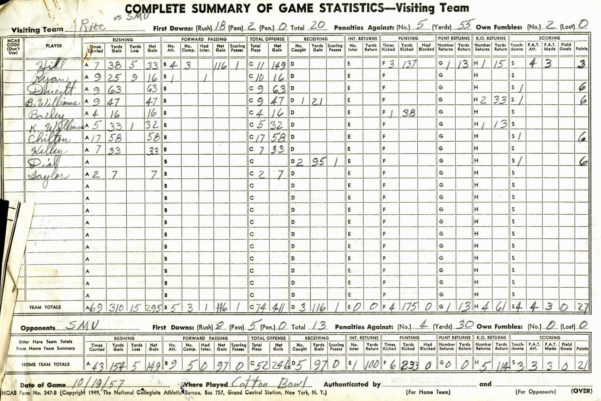 COMPLETE SUMMARY OF GAME STATISTICS—Visiting Team
Visiting Team Rice vs SMU First Downs: (Rush) 18 (Pass) 2 (Pen.) 0 Total 20 Penalties Against: (No.) 5 (Yards) 55 Own Fumbles: (No.) 2 (Lost) 0
NCAB CODE (Don't Use) PLAYER RUSHING FORWARD PASSING TOTAL OFFENSE RECEIVING INT. RETURNS PUNTING PUNT RETURNS K.O. RETURNS SCORING
Times Carried Yards Gain Yards Loss Net Gain No. Att. No. Comp. Had Inter. Yards Gain Scoring Passes Total Plays Net Gain No. Caught Yards Gain Scoring Passes No. Inter. Yards Return No. Punts Yards Kicked Had Blocked Number Return Yards Return Number Return Yards Return Touchdowns P.A.T. Att. P.A.T. Made Field Goals Points
Hill A 7 38 5 33 B 4 3 116 1 C 11 149 D E F 3 137 G 1 13 H 1 15 S 4 3 3
Ryan A 9 25 9 16 B 1 1 C 10 16 D E F G H S
A 9 63 63 B C 9 63 D E F G H S 1 6
B. Williams A 9 47 47 B C 9 47 D 1 21 E F G H 2 33 S 1 6
Bailey A 4 16 16 B C 4 16 D E F 1 38 G H S
K. Williams A 5 33 1 32 B C 5 32 D E F G H 1 13 S
Chilton A 17 58 58 B C 17 58 D E F G H S 1 6
A 7 33 33 B C 7 33 D E F G H S
Dial A B C D 2 95 1 E F G H S 1 6
Taylor A 2 7 7 B C 2 7 D E F G H S
TEAM TOTALS A 69 310 15 295 B 5 3 1 116 1 C 74 411 D 3 116 1 E 0 0 F 4 175 0 G 1 13 H 4 61 S 4 4 3 0 27
Opponents SMU First Downs: (Rush) 8 (Pass) 5 (Pen.) 0 Total 13 Penalties Against: (No.) 4 (Yards) 30 Own Fumbles: (No.) 0 (Lost) 0
Enter Here Team Totals From Home Team Summary
HOME TEAM TOTALS A 43 154 5 149 B 9 5 0 97 0 C 52 246 D 5 97 0 E 1 100 F 6 233 0 G 0 0 H 5 114 S 3 3 3 0 21
Date of Game 10/19/57 Where Played Cotton Bowl Authenticated by and
NCAB Form No. 347-B (Copyright 1949, The National Collegiate Athletic Bureau, Box 757, Grand Central Station, New York, N. Y.) (For Home Team) (For Opponents) (OVER)